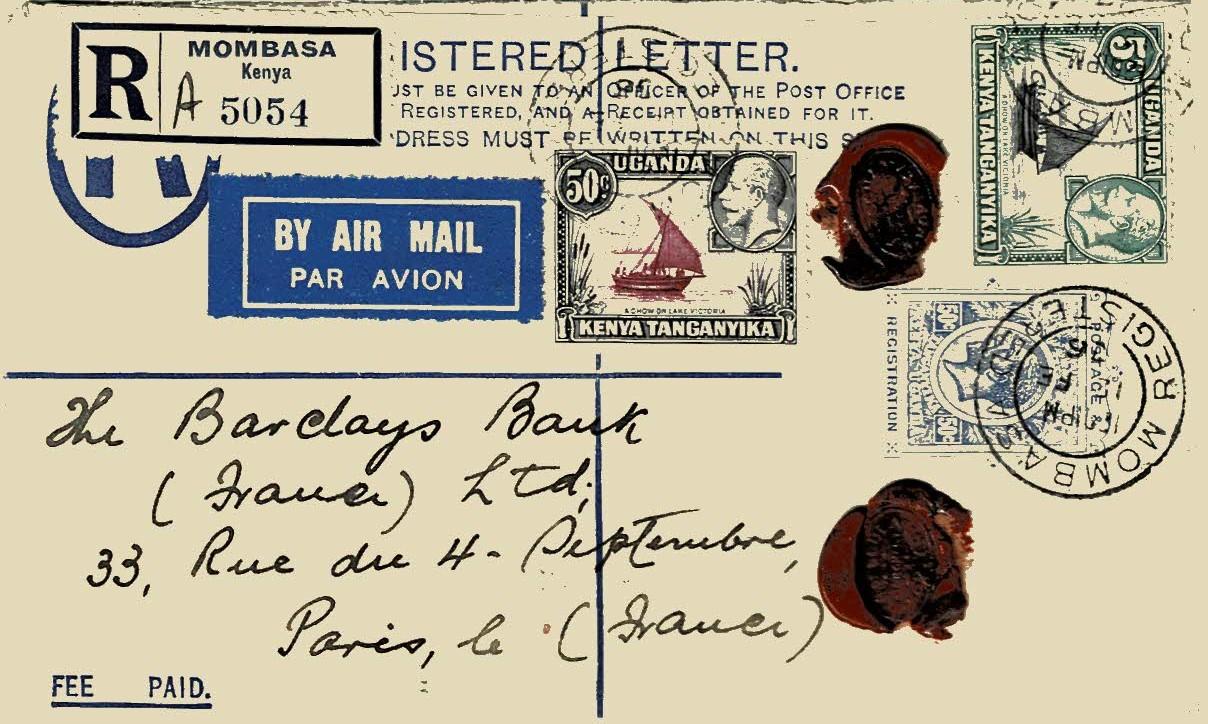 R
MOMBASA
Kenya
A 5054
ISTERED LETTER.
UST BE GIVEN TO AN OFFICER OF THE POST OFFICE
REGISTERED, AND A RECEIPT OBTAINED FOR IT.
DRESS MUST BE WRITTEN ON THIS S
BY AIR MAIL
PAR AVION
50c
UGANDA
A DHOW ON LAKE VICTORIA
KENYA TANGANYIKA
5
UGANDA
A DHOW ON LAKE VICTORIA
KENYA TANGANYIKA
REGISTRATION
POSTAGE &
50c
REGISTERED MOMBASA
The Barclays Bank
(France) Ltd;
33, Rue du 4- Septembre,
Paris, le (France)
FEE PAID.